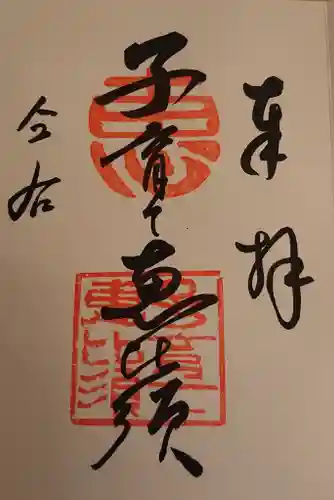 奉拝
子育て恵比須
仝右